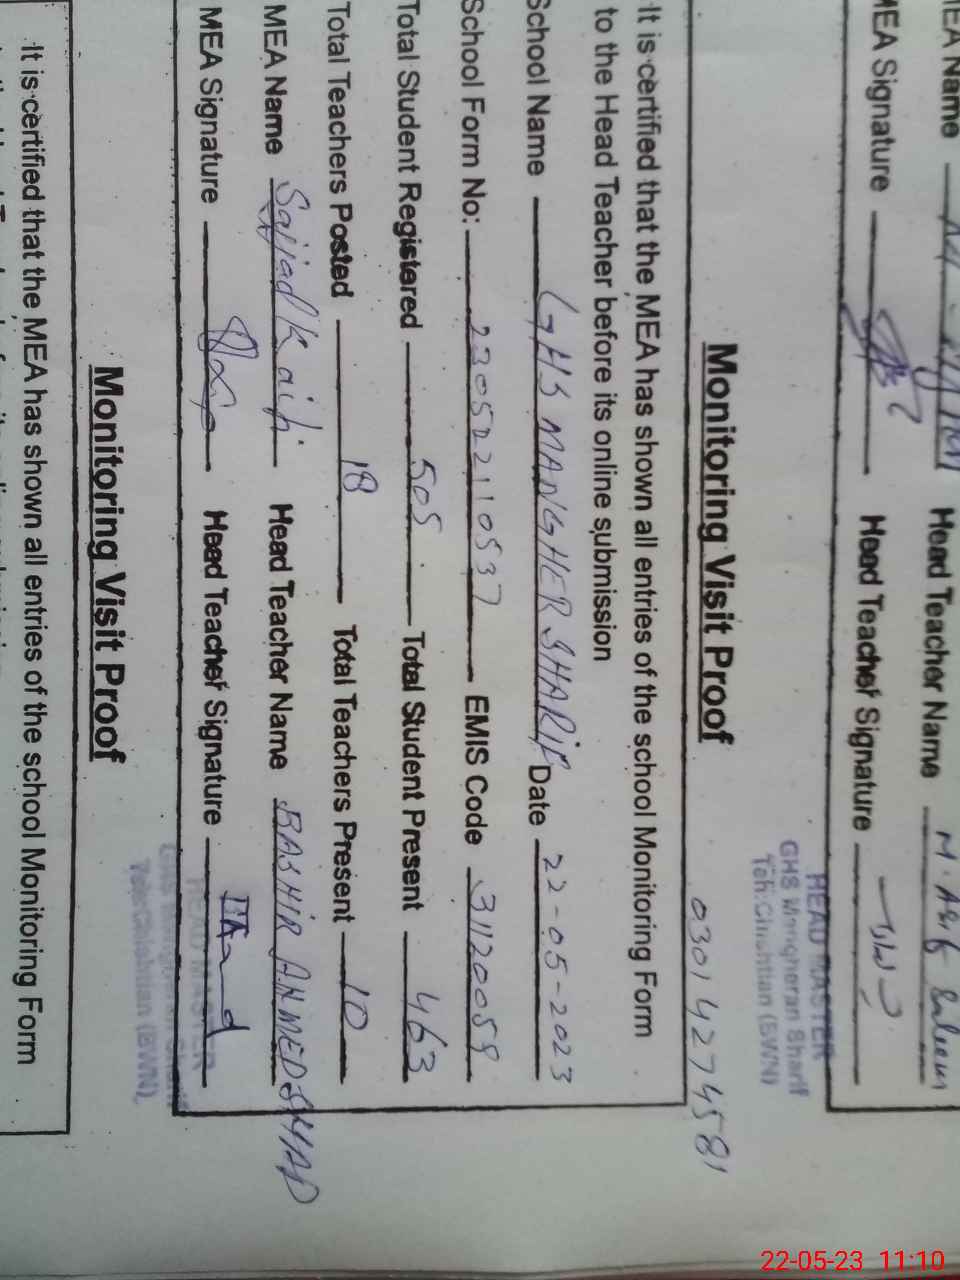 MEA Name Head Teacher Name M. Asif Saleem
MEA Signature Head Teacher Signature
HEAD MASTER
GHS Mangheran Sharif
Teh: Chishtian (BWN)
0301 4274581
Monitoring Visit Proof
It is certified that the MEA has shown all entries of the school Monitoring Form
to the Head Teacher before its online submission
School Name GHS MANGHER SHARIF Date 22-05-2023
School Form No: 23052210537 EMIS Code 31120058
Total Student Registered 505 Total Student Present 463
Total Teachers Posted 18 Total Teachers Present 10
MEA Name Sajjad Head Teacher Name BASHIR AHMED
MEA Signature Head Teacher Signature
HEAD MASTER
GHS Mangheran Sharif
Teh: Chishtian (BWN)
Monitoring Visit Proof
It is certified that the MEA has shown all entries of the school Monitoring Form
22-05-23 11:10